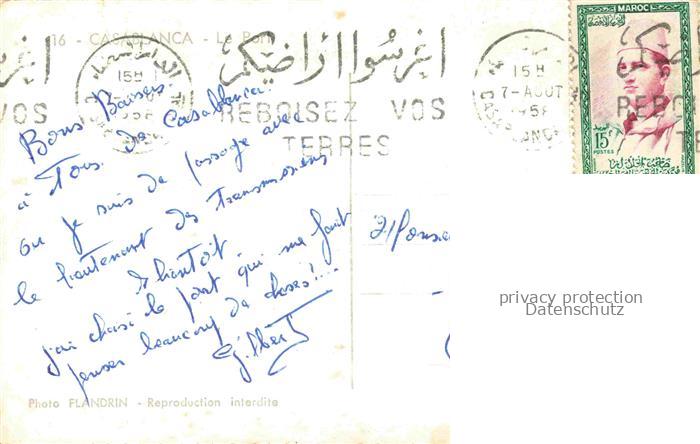 16 - CASABLANCA - Le Port
MAROC
15H
7-AOUT
1958
اغرسوا أراضيكم
REBOISEZ VOS
TERRES
15F
POSTES
Bons Baisers
à Tous de Casablanca
ou je suis de passage avec
le lieutenant des transmissions
A bientôt
j'ai choisi le port qui me fait
penser beaucoup de choses!...
Gilbert
Monsie
privacy protection
Datenschutz
Photo FLANDRIN - Reproduction interdite